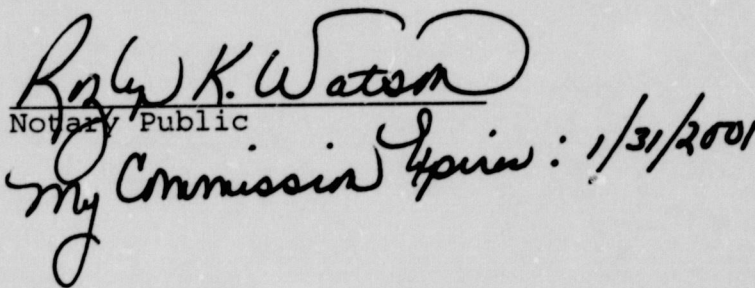 Rozlyn K. Watson
Notary Public
My Commission Expires: 1/31/2001